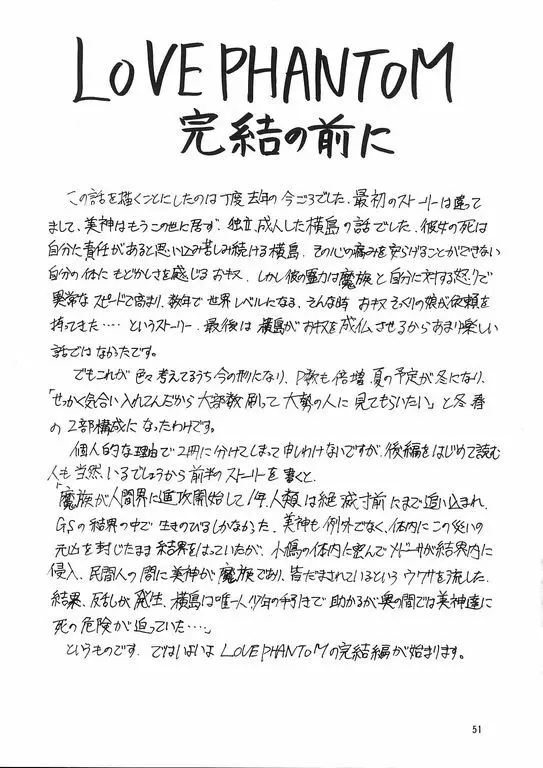 LOVE PHANTOM
完結の前に
この話を描くことにしたのは丁度去年の今ごろでした。最初のストーリーは違って
まして、美神はもうこの世に居ず、独立、成人した横島の話でした。彼女の死は
自分に責任があると思い込み苦しみ続ける横島、その心の痛みを安らげることができない
自分の体にもどかしさを感じるおキヌ、しかし彼の霊力は魔族と自分に対する怒りで
異常なスピードで高まり、数年で世界レベルになる、そんな時おキヌそっくりの娘が依頼を
持ってきた…… というストーリー、最後は横島がおキヌを成仏させるからあまり楽しい
話ではなかったです。
でもこれが色々考えてるうち今の形になり、P数も倍増、夏の予定が冬になり、
「せっかく気合い入れてんだから大部数刷して大勢の人に見てもらいたい」と冬春
の2部構成になったわけです。
個人的な理由で2冊に分けてしまって申しわけないですが、後編をはじめて読む
人も当然いるでしょうから前半のストーリーを書くと、
「魔族が人間界に進攻開始して1年、人類は絶滅寸前にまで追い込まれ、
GSの結界の中で生きのびるしかなかった、美神も例外でなく、体内にこの災いの
元凶を封じたまま結界をはっていたが、小鳩の体内に密んでメドーサが結界内に
侵入、民間人の間に美神が魔族であり、皆だまされているというウワサを流した、
結果、反乱が発生、横島は唯一人少年の手引きで助かるが奥の間では美神達に
死の危険が迫っていた…。」
というものです、ではいよいよ LOVE PHANTOMの完結編が始まります。
51